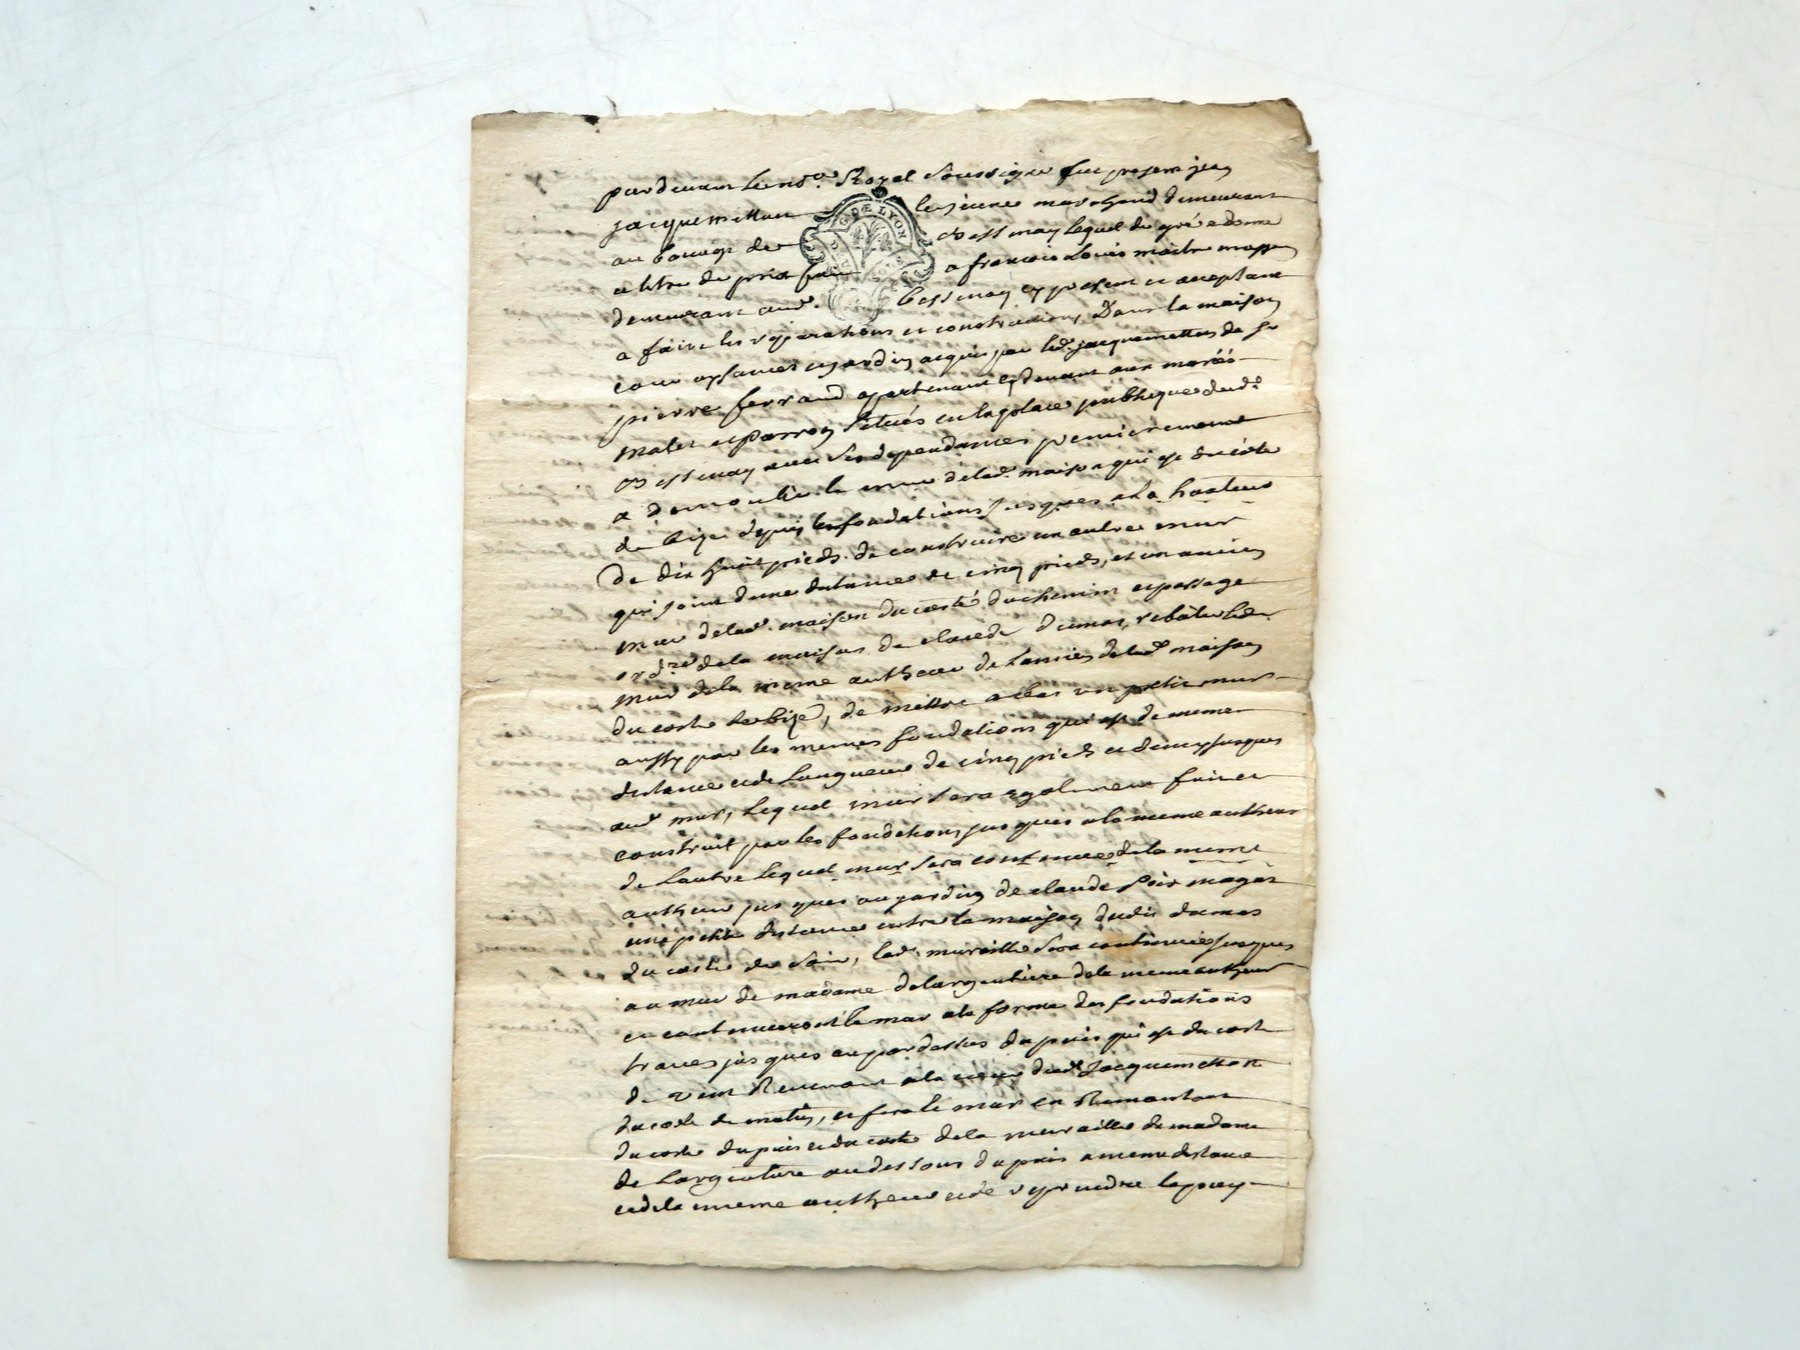 pardevant le no.re Royal Soussigné fut present jean
jacquemetton le jeune marchand demeurant
au bourg de Bessenay lequel de gré a donné
a titre de prix fait a francois Louis maitre masson
demeurant aud. bessenay cy present et acceptant
a faire les reparations et constructions, Dans la maison
cour aysances et jardin acquis par led. jacquemetton de s.r
pierre ferrand appartenant cy devant aux mariés
malet et perron Situés en la place publique dud.
Bessenay avec Ses dependances premierement
a demoulir le mur de lad. maison qui est du côté
de bize depuis les fondations Jusques a la hauteur
De dix huit pieds. de construire un autre mur
qui joint d'une distance de cinq pieds, et un ancien
mur de lad. maison du costé du chemin et passage
de la maison de claude dumas, rebâtir led.
mur de la meme autheur de l'ancien de lad. maison
du costé de bize, de mettre a bas un petit mur
aussy par les memes fondations qui est de meme
distance et de Longueur de cinq pieds et demy jusques
aud. mur, Lequel mur sera egalement fait et
construit par les fondations jusques a la meme autheur
de Lautre Lequel mur sera continué de la meme
autheur jusques au jardin de claude
une petite distance entre la maison dudit dumas
du costé de Soir, lad. muraille Sera continuée jusques
au mur de madame delargentiere de la meme autheur
et continueront le mur a la forme des fondations
traces jusques au par dessus du puis qui est du costé
de vent Revenant a la cour dud. Jacquemetton
du costé de matin, et fera le mur en Remontant
du costé du puis et du costé de la muraille de madame
de Largentiere au dessous du puis a meme distance
et de la meme autheur et de reprendre le puy
GNALE LYON